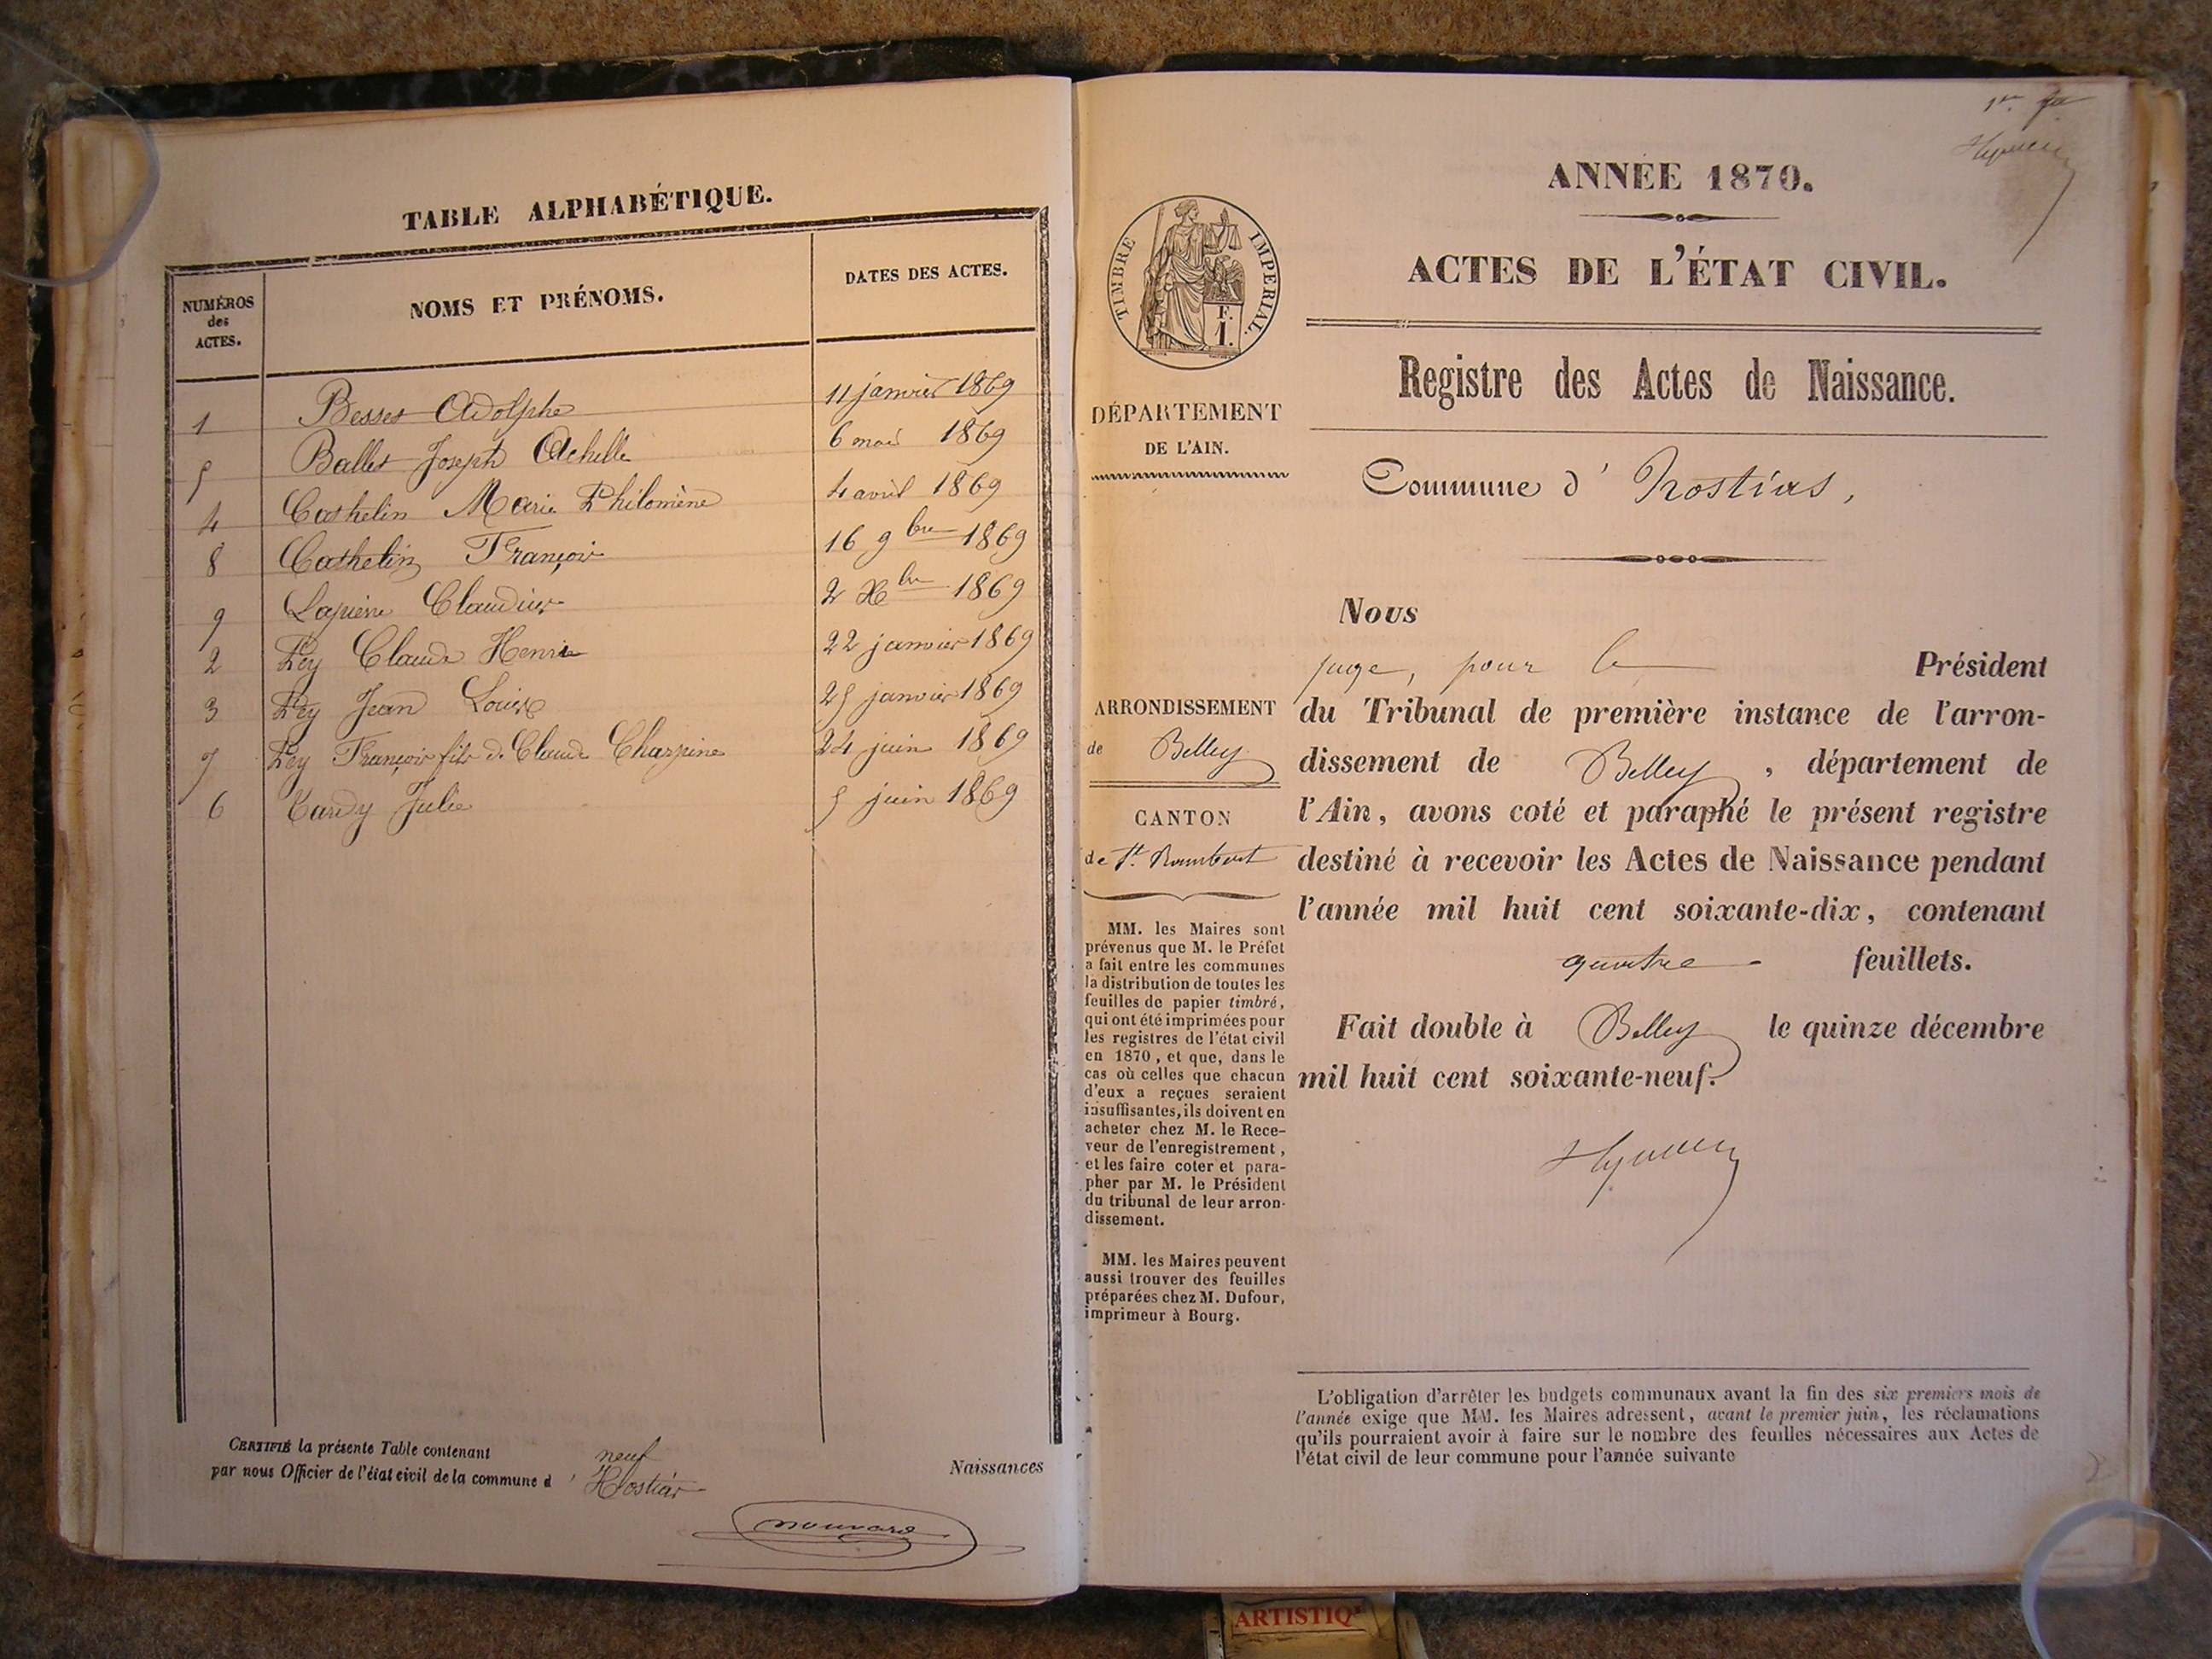 TABLE ALPHABÉTIQUE.
NUMÉROS
des
ACTES.
NOMS ET PRÉNOMS.
DATES DES ACTES.
1 Besset Adolphe 11 janvier 1869
5 Ballet Joseph Achille 6 mai 1869
4 Cathelin Marie Philomène 4 avril 1869
8 Cathelin François 16 9bre 1869
9 Lapierre Claudius 2 Xbre 1869
2 Rey Claude Henri 22 janvier 1869
3 Rey Jean Louis 25 janvier 1869
7 Rey François fils de Claude Charpine 24 juin 1869
6 Tardy Julie 5 juin 1869
CERTIFIÉ la présente Table contenant neuf Naissances
par nous Officier de l'état civil de la commune d'Hostias
ANNÉE 1870.
ACTES DE L'ÉTAT CIVIL.
Registre des Actes de Naissance.
Commune d' Hostias,
TIMBRE IMPERIAL.
F.
1.
DÉPARTEMENT
DE L'AIN.
ARRONDISSEMENT
de Belley
CANTON
de St. Rambert
MM. les Maires sont
prévenus que M. le Préfet
a fait entre les communes
la distribution de toutes les
feuilles de papier timbré,
qui ont été imprimées pour
les registres de l'état civil
en 1870, et que, dans le
cas où celles que chacun
d'eux a reçues seraient
insuffisantes, ils doivent en
acheter chez M. le Rece-
veur de l'enregistrement,
et les faire coter et para-
pher par M. le Président
du tribunal de leur arron-
dissement.
MM. les Maires peuvent
aussi trouver des feuilles
préparées chez M. Dufour,
imprimeur à Bourg.
Nous
juge, pour le Président
du Tribunal de première instance de l'arron-
dissement de Belley, département de
l'Ain, avons coté et paraphé le présent registre
destiné à recevoir les Actes de Naissance pendant
l'année mil huit cent soixante-dix, contenant
quatre feuillets.
Fait double à Belley le quinze décembre
mil huit cent soixante-neuf.
L'obligation d'arrêter les budgets communaux avant la fin des six premiers mois de
l'année exige que MM. les Maires adressent, avant le premier juin, les réclamations
qu'ils pourraient avoir à faire sur le nombre des feuilles nécessaires aux Actes de
l'état civil de leur commune pour l'année suivante
ARTISTIQ